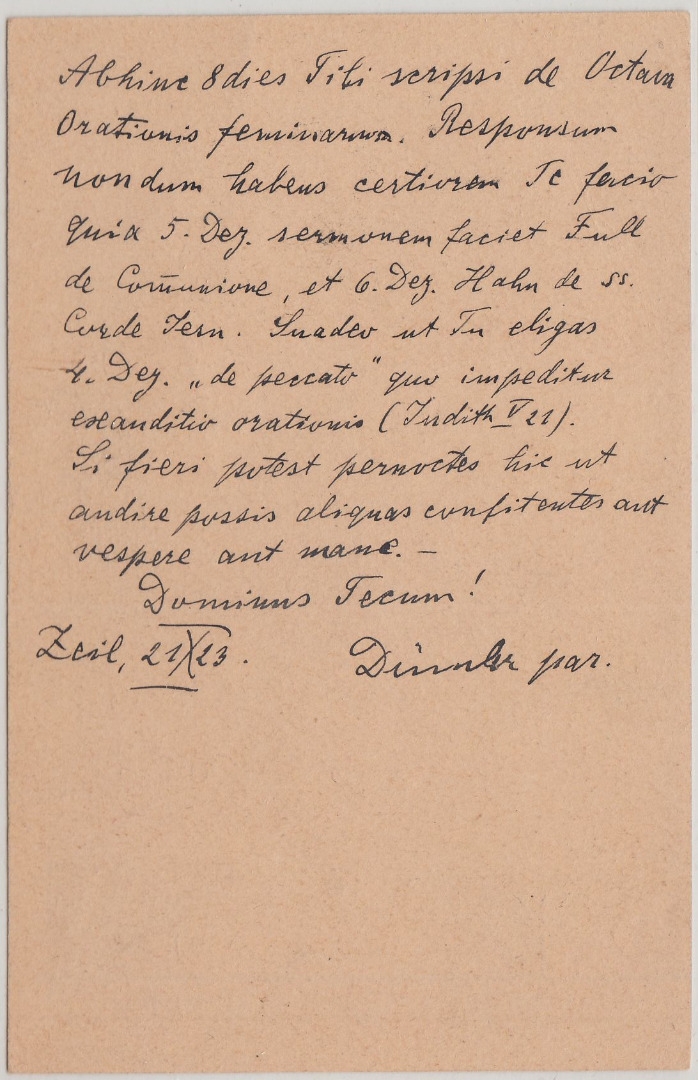 Abhinc 8 dies Tibi scripsi de Octava
Orationis feminarum. Responsum
nondum habens certiorem Te facio
quia 5. Dez. sermonem faciet Full
de Com̄unione, et 6. Dez. Hahn de ss.
Corde Jesu. Suadeo ut Tu eligas
4. Dez. „de peccato" quo impeditur
exauditio orationis (Judith V 21).
Si fieri potest pernoctes hic ut
audire possis aliquas confitentes aut
vespere aut mane. —
Dominus Tecum!
Zeil, 21/X 23. par.